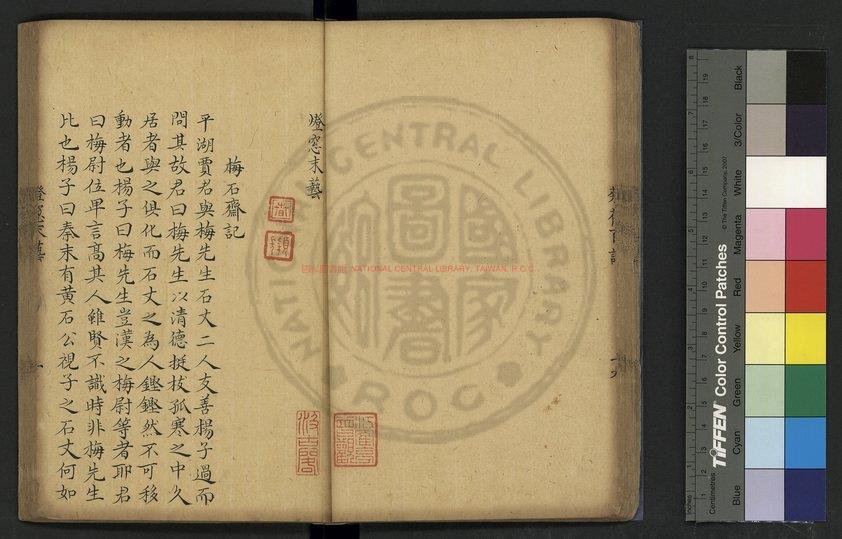 燈窓末藝
梅石齋記
平湖賈君與梅先生石丈二人友善楊子過而
問其故君曰梅先生以清德挺拔孤寒之中久
居者與之俱化而石丈之為人鏗鏗然不可移
動者也楊子曰梅先生豈漢之梅尉等者耶君
曰梅尉位卑言高其人雖賢不識時非梅先生
比也楊子曰秦末有黃石公視子之石丈何如
燈窓末藝
一
國家圖書館 NATIONAL CENTRAL LIBRARY, TAIWAN, R.O.C
NATIONAL CENTRAL LIBRARY
ROC
國家圖書館
TIFFEN Color Control Patches
© The Tiffen Company, 2007
Centimetres
Inches
Blue
Cyan
Green
Yellow
Red
Magenta
White
3/Color
Black